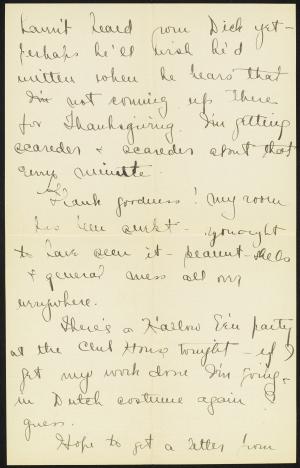 Haven't heard from Dick yet -
perhaps he'll wish he'd
written when he hears that
I'm not coming up there
for Thanksgiving. I'm getting
scareder & scareder about that
every minute.
Thank goodness! my room
has been swept - you ought
to have seen it - peanut-shells
& general mess all over
everywhere.
There's a Hallow E'en party
at the Club House tonight - if I
get my work done I'm going -
in Dutch costume again I
guess.
Hope to get a letter from